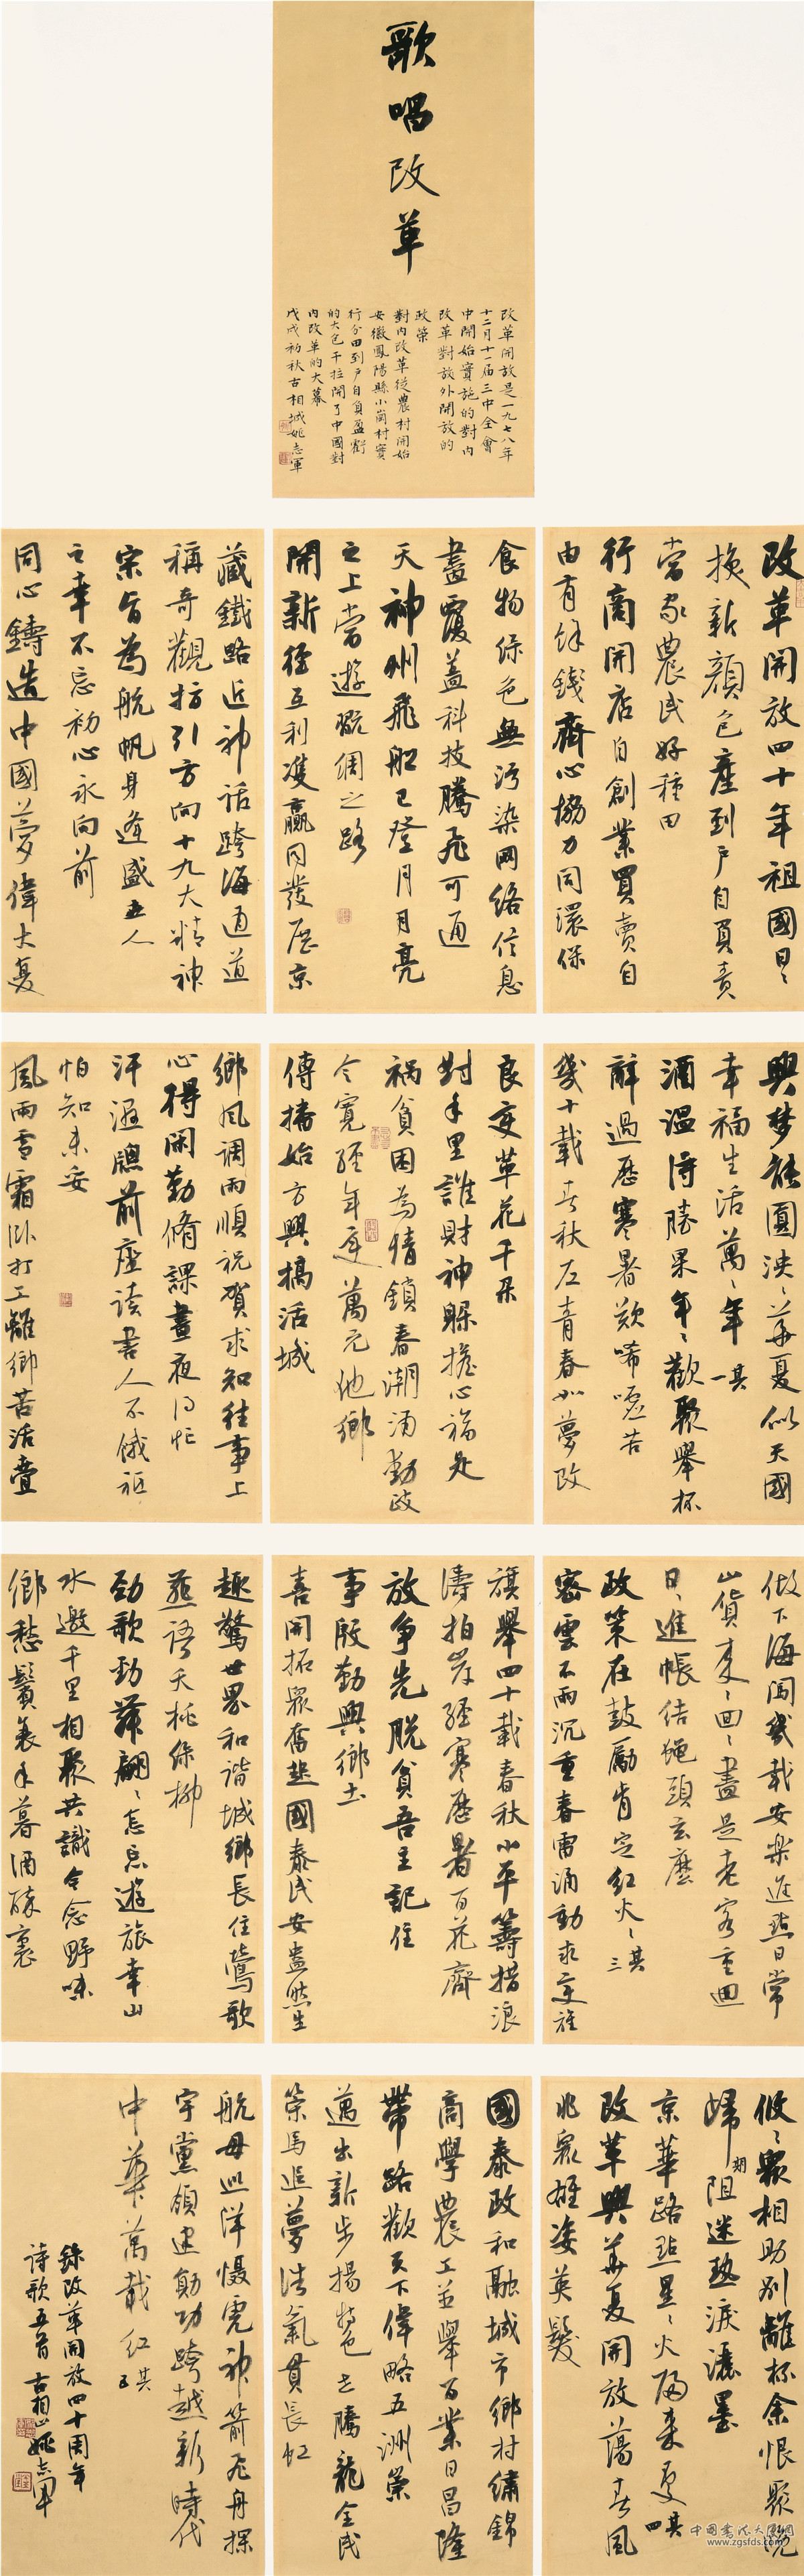 歌唱改革
改革開放是一九七八年
十二月十一届三中全會
中開始實施的對内
改革對放外開放的
政策
對内改革從農村開始
安徽鳳陽縣小崗村實
行分田到户自負盈虧
的大包干拉開了中國對
内改革的大幕
戊戌初秋古相城姚志軍
改革開放四十年祖國日〻
换新顔包産到户自負責
當家農民好種田
行商開店自創業買賣自
由有餘錢齊心協力同環保
食物緑色無污染网絡信息
盡覆蓋科技騰飛可通
天神州飛船已登月月亮
之上當遊覽綢之路
開新徑互利雙贏同發展京
藏鐵路近神話跨海通道
稱奇觀指引方向十九大精神
宗旨為航帆身逢盛世人
之幸不忘初心永向前
同心鑄造中國夢偉大夏
興梦能圓泱〻華夏似天國
幸福生活萬〻年 其一
酒温待騰果年〻歡聚舉杯
辭過歷寒暑歎唏嘘苦
幾十載春秋左青春如夢改
良变革花千朵
對手里誰財神躲擔心福是
祸貧困為情鎖春潮涌動政
令寬經年逐萬元他鄉
傳播始方興搞活城
鄉風调雨順祝贺求知往事上
心得閑勤脩課晝夜
汗濕牕前座读書人不饿
怕知未妥
風雨雪霜卧打工離鄉苦活壹
做下海闯幾載安樂進點日常
山貨来〻回〻盡是老客重回
日〻進帳结蠅頭玄麼
政策在鼓勵肯定红火〻 其三
密雲不雨沉重春雷涌動求变旌
旗舉四十載春秋小平籌措浪
濤拍岸經寒歷暑百花齊
放争先脱貧吾主記住
事殷勤興鄉土
喜開拓眾奮起國泰民安盎然生
趣驚世界和谐城鄉長住鶯歌
燕語夭桃緑柳
勁歌勁舞翩〻忘忘遊旅幸山
水邀千里相聚共識念念野味
鄉愁鬢衰年暮酒醉裏
攸〻眾相助别離杯余恨聚晚
歸阻迷熱淚灑墨
京華路點星〻火歸来夏 其四
改革興華夏開放蕩春風
兆眾雄姿英髮
國泰政和融城市鄉村繡錦
高學農工并舉百業日昌隆
帶路歡天下偉略五洲榮
邁出新步揚特色世騰龍全民
策馬追夢浩氣貫長虹
航母巡洋慑虎神箭飛舟探
宇黨領建勛功跨越新時代
中華萬載红 其五
録改革開放四十周年
詩歌五首 古相 姚志軍
中国书法大厦网
www.zgsfds.com